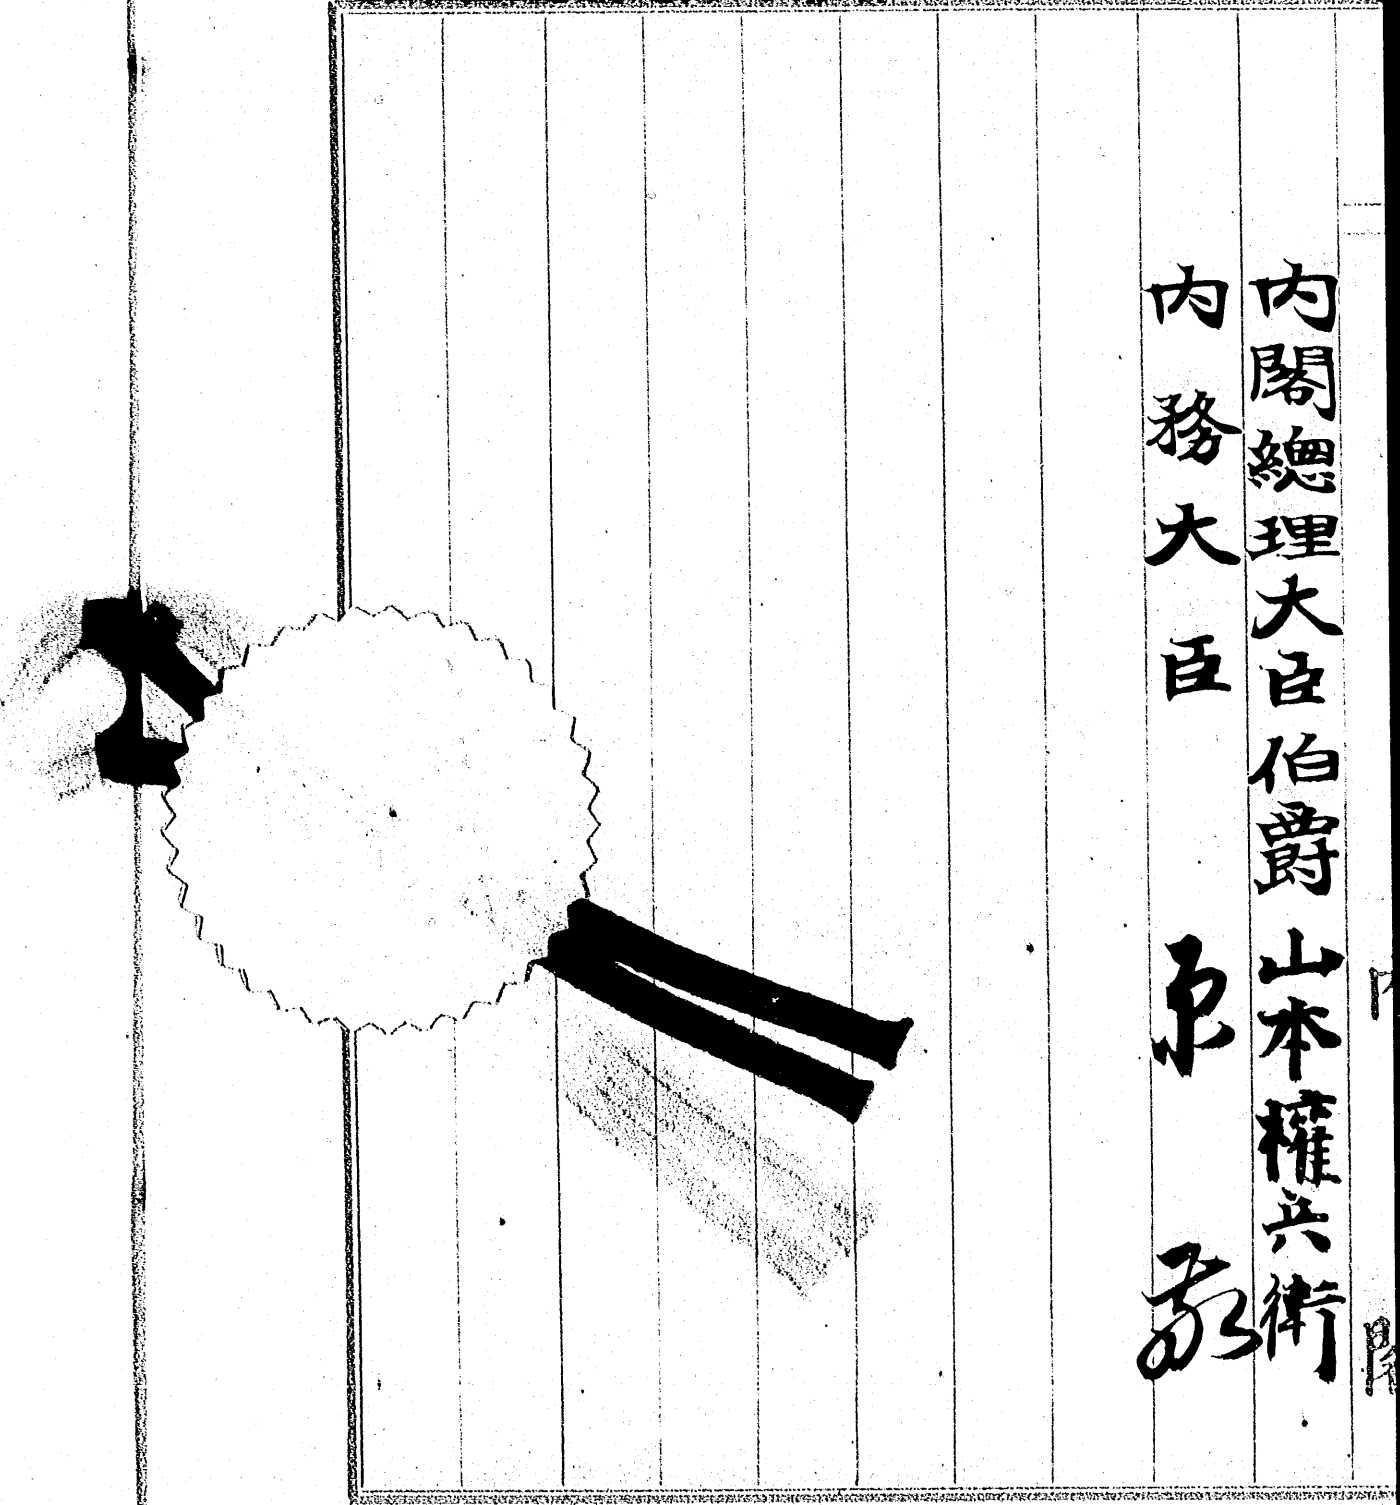 內閣總理大臣伯爵山本權兵衞
內務大臣 原敬